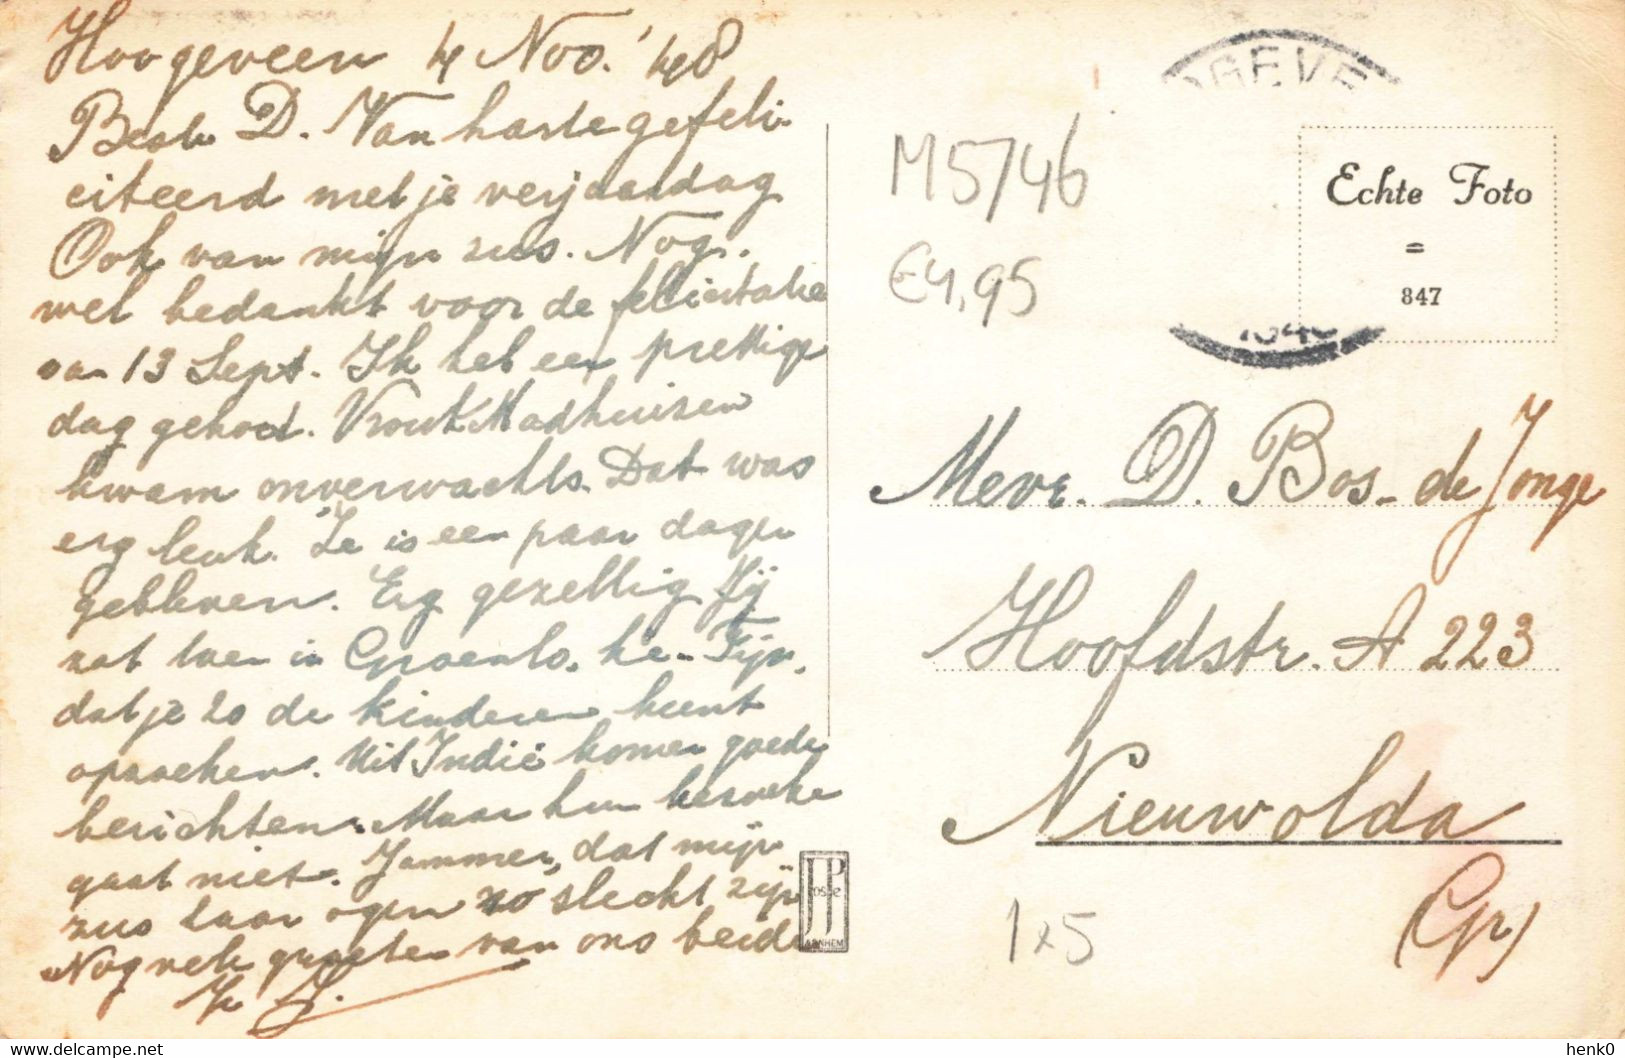 Hoogeveen 4 Nov. '48
Beste D. Van harte gefeli-
citeerd met je verjaardag
Ook van mijn zus. Nog
wel bedankt voor de felicitatie
van 13 Sept. Ik heb een prettige
dag gehad. Vrouk Madhuizen
kwam onverwachts. Dat was
erg leuk. Ze is een paar dagen
gebleven. Erg gezellig Jij
zat toen in Groenlo, hè. Fijn,
dat je zo de kinderen kunt
opzoeken. Uit Indië komen goede
berichten. Maar hun bezoeke
gaat niet. Jammer, dat mijn
zus haar ogen zo slecht zijn
Nog vele groeten van ons beide
J.
M5746
€4,95
OGEVE
Echte Foto
=
847
Mevr. D. Bos-de Jonge
Hoofdstr. A 223
Nieuwolda
(Gr)
1x5
JosPe
ARNHEM
delcampe.net
henk0